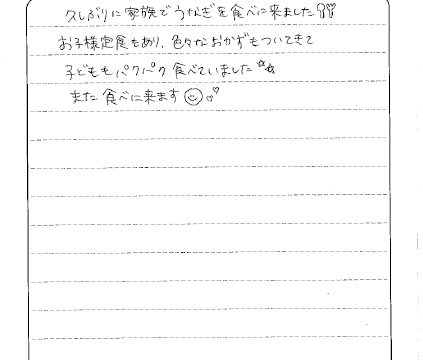 久しぶりに家族でうなぎを食べに来ました!!♡♡
お子様定食もあり、色々なおかずもついてきて
子どももパクパク食べていました☆☆
また食べに来ます☺♪♡